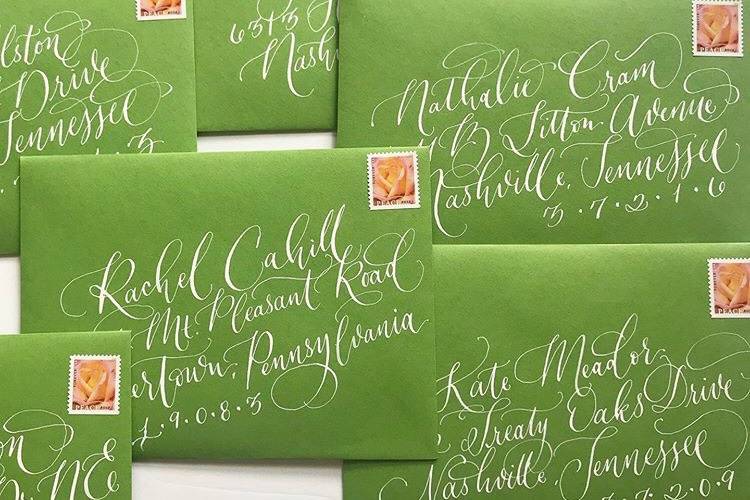 Drive
Tennessee
Nash
Nathalie Cram
Litton Avenue
Nashville, Tennessee
3.7.2.1.6
PEACE
Rachel Cahill
Mt. Pleasant Road
ertown, Pennsylvania
1.9.0.8.3
PEACE
Kate Meador
Treaty Oaks Drive
Nashville, Tennessee
2.0.9
PEACE
PEACE
NE